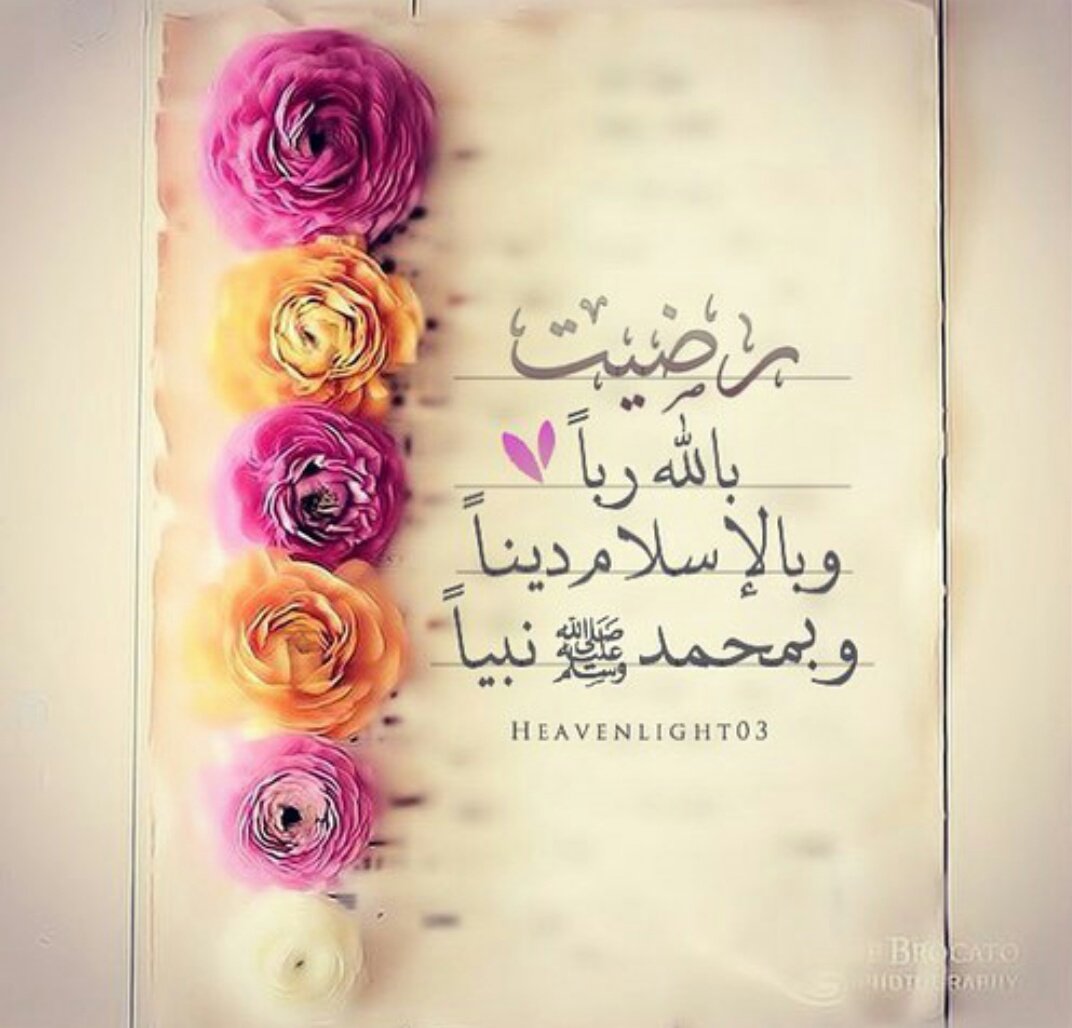 رضيت
بالله رباً
وبالإسلام ديناً
وبمحمد ﷺ نبياً
HEAVENLIGHT03
BROCATO
PHOTOGRAPHY